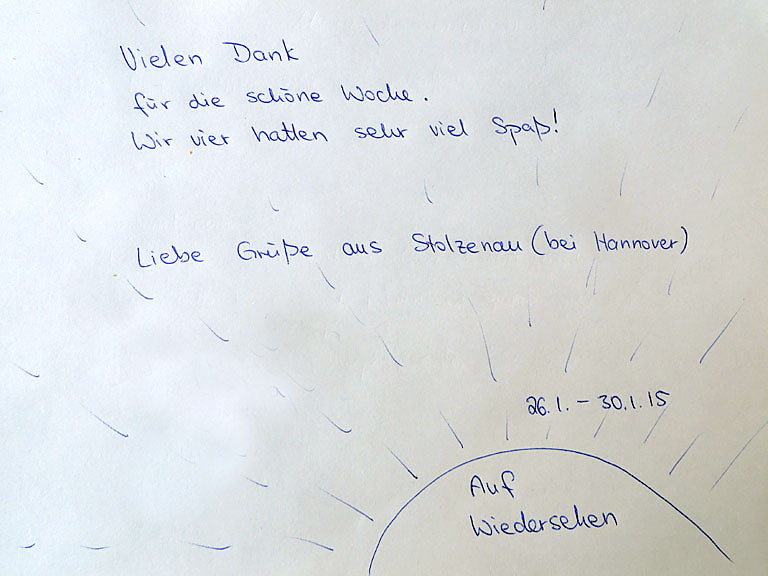 Vielen Dank
für die schöne Woche.
Wir vier hatten sehr viel Spaß!
Liebe Grüße aus Stolzenau (bei Hannover)
26.1. – 30.1.15
Auf
Wiedersehen